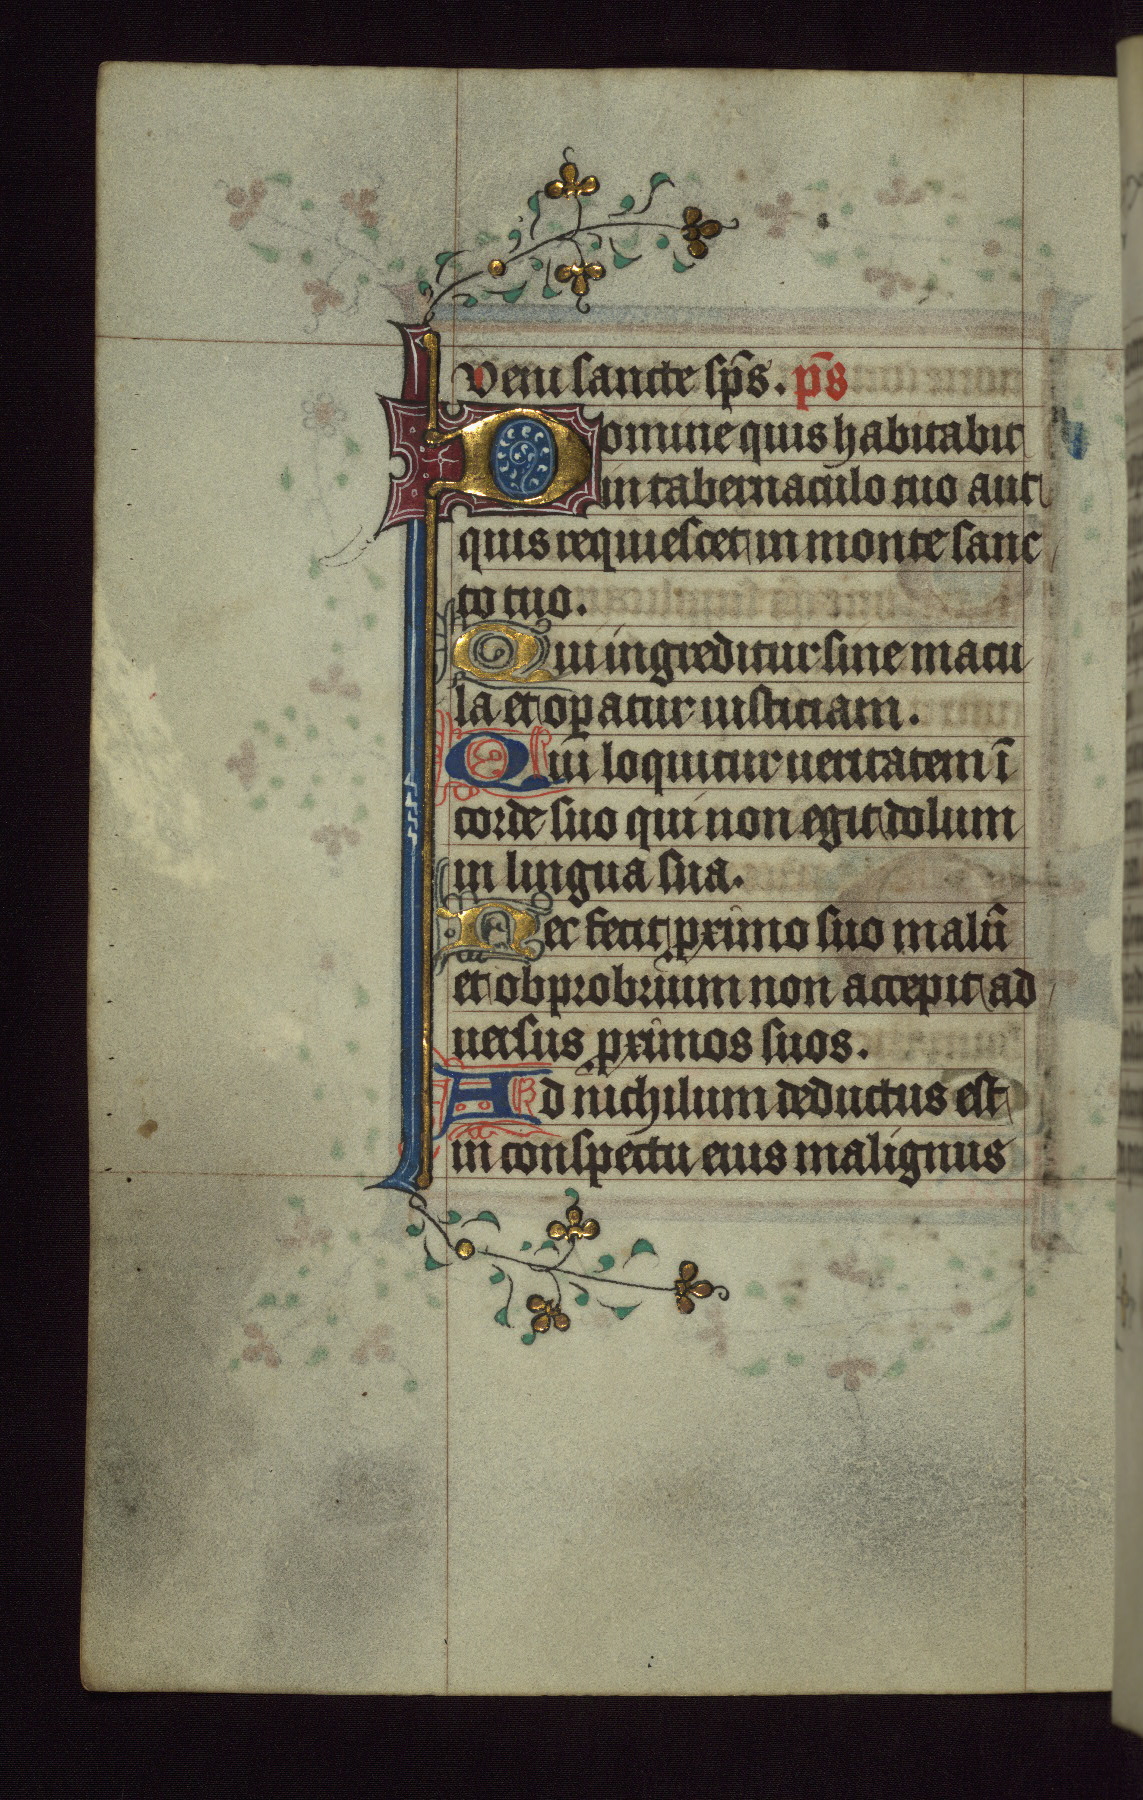 Veni sancte sp̄s. p̄s
Domine quis habitabit
in tabernaculo tuo aut
quis requiescet in monte sanc
to tuo.
Qui ingreditur sine macu
la et opatur iusticiam.
Qui loquitur ueritatem ī
corde suo qui non egit dolum
in lingua sua.
Nec fecit pximo suo malū
et obprobrium non accepit ad
uersus pximos suos.
Ad nichilum deductus est
in conspectu eius malignus